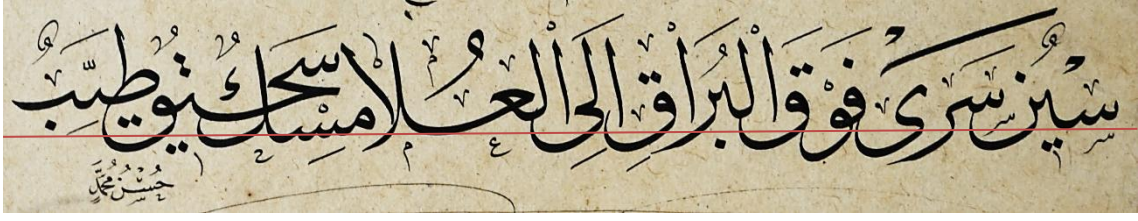 سين سَرَى فَوْقَ الْبُرَاقِ اِلَى الْعُلَا مسك وطيّبُ
حسن محمد